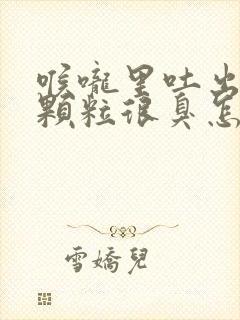 喉嚨里吐出
顆粒很臭怎
雪嬌兒